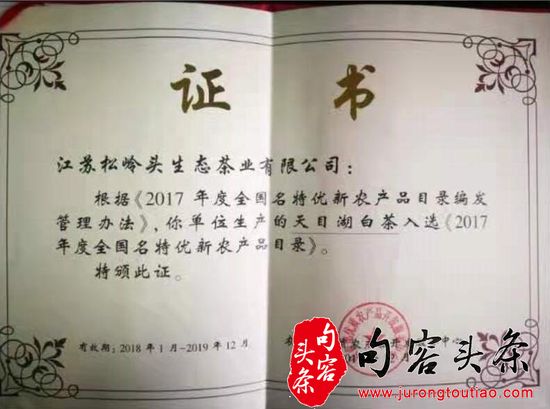 证书
江苏松岭头生态茶业有限公司：
根据《2017 年度全国名特优新农产品目录编发
管理办法》，你单位生产的天目湖白茶入选《2017
年度全国名特优新农产品目录》。
特颁此证。
有效期：2018 年 1 月-2019 年 12 月
句容头条
句容头条
www.jurongtoutiao.com